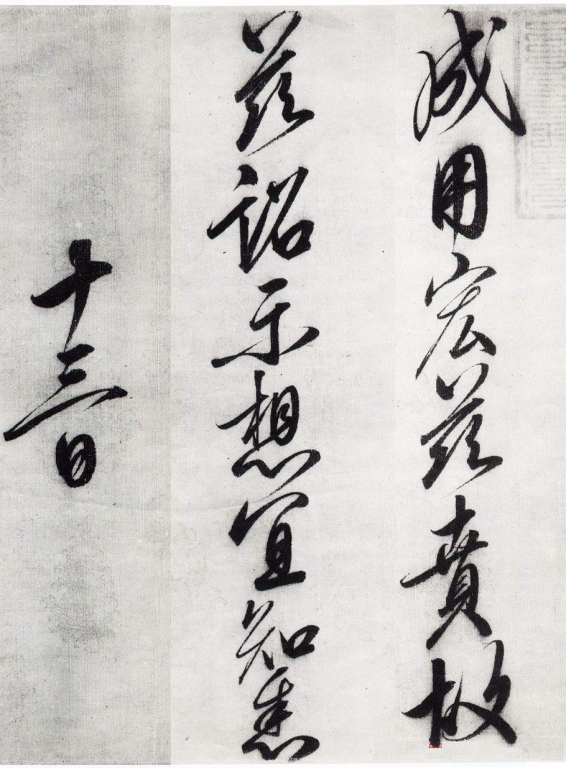 成用宏茲賁故
茲詔示想宜知悉
十三日